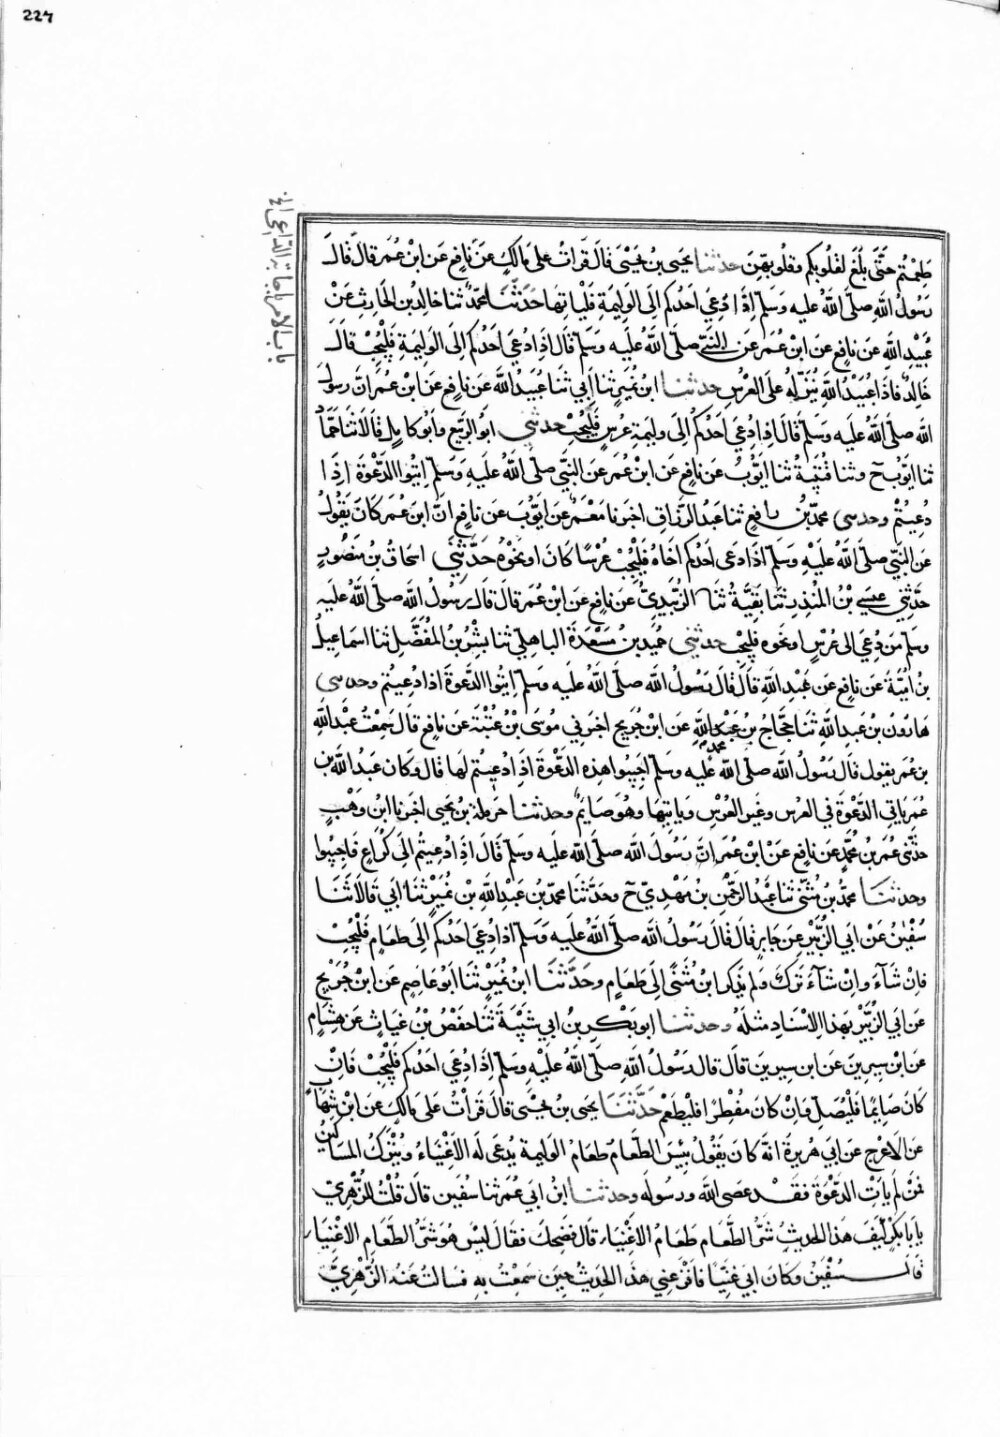 227
باب الامر باجابة الداعي الخ
طعمتم حَتّٰى بَلَغَ لقلوبكم وقلوبهن حدثنا يحيى بن يَحْيَىٰ قَالَ قَرَاتُ عَلىٰ مَالِكٍ عَنْ نَافِعٍ عَنِ ابْنِ عُمَرَ قَالَ قَالَ
رَسُولُ اللهِ صَلَّى اللهُ عليه وَسَلم اِذَا دُعِيَ اَحَدُكم الى الوَلِيمَةِ فَليَاتِهَا حَدَّثَنَا محمدٌ ثنا خالد بن الحَارِثِ عَنْ
عُبَيْدِ اللهِ عَن نافِعٍ عَن ابْنِ عُمَرَ عَن النَّبيّ صلَّى اللهُ عليه وَسَلمَ قَالَ اذَا دُعِيَ اَحَدُكم اِلَى الوَلِيمَةِ فَلْيُجِبْ قَالَ
خَالِدٌ فَاذَا عُبَيْدُ اللهِ يُنَزِّلهُ عَلَى العُرْسِ حدثنا ابنُ نُمَيرٍ ثنا اَبي ثَنا عُبَيدُ اللهِ عَن نافِعٍ عَن ابن عُمَر اَنَّ رسولَ
الله صَلَّى اللهُ عليه وَسَلمَ قَالَ اِذَا دُعِيَ اَحَدُكُم اِلَى وَلِيمَةِ عُرسٍ فَلْيُجِبْ حدثني ابو الرَّبيع وأَبُو كامِلٍ قَالَا ثنَا حَمَّادٌ
ثنا ايّوُبُ ح وثنا قُتَيْبَةُ ثنا ايّوُبُ عَن نَافِعٍ عَن ابْنِ عُمَرَ عَن النَّبيّ صلى اللهُ عليهِ وَسَلمَ ايتوا الدَّعْوَةَ اِذَا
دُعِيتُمْ وحدسى محمدُ بنُ رافِعٍ ثنا عَبدُ الرَّزَّاقِ اخبرنا مَعْمَرٌ عَن ايّوُبَ عَن نَافِعٍ انَّ ابن عُمَر كانَ يَقُولُ
عَن النَّبيّ صلى اللهُ عَلَيْهِ وَسَلم اذَا دَعى اَحَدُكم اخَاهُ فَلْيُجِبْ عُرْسًا كَانَ او نحْوَهُ حَدَّثَنِي اسحاقُ بنُ منصُورٍ
حَدَّثَنِي عيسى بْنُ المُنْذِرِ ثنا بَقِيَّةُ ثنا الزُّبَيْدِيُّ عَن نَافِعٍ عَن ابْن عُمَر قَالَ قَالَ رَسُولُ اللهِ صلّى اللهُ عليه
وسلم مَن دُعِيَ الى عُرْسٍ او نحوه فليُجِب حدثني حُمَيد بنُ مَسْعَدَةَ الباهِلِي ثنا بِشْرُ بنُ المُفَضَّلِ ثنا اسماعيلُ
بنُ امَيَّةَ عَن نَافِع عَن عَبدِ اللهِ قَالَ قَالَ رَسُولُ الله صلى اللهُ عليه وسلم ايتُوا الدَّعوَةَ اذا دُعِيتُم وحدسى
هَارُونُ بن عَبدِ اللهِ ثنا حَجَّاجُ بن محمد عَن ابْنِ جُرَيجٍ اخبرَنِي مُوسَى بْنُ عُقْبَةَ عَن نَافِعٍ قَالَ سَمِعْتُ عَبْدَ اللهِ
بن عُمَرَ يقول قَالَ رَسُولُ الله صلى الله عليه وسلم اَجِيبُوا هذِهِ الدَّعْوَةَ اذَا دُعِيتُم لها قَالَ وكان عَبْدُ اللهِ بن
عُمَر يَاتِي الدَّعْوَةَ في العرس وغيرِ العُرْسِ ويَاتِيهَا وهُو صَايِمٌ وحدثنا حرملة بن يحيى اخبرنا ابن وَهْبٍ
حَدَّثَنِي عمر بن مُحَمَّدٍ عَن نَافِعٍ عَنْ ابْن عُمَر اَنَّ رَسُولَ الله صلى الله عليه وسلم قَالَ اذَا دُعِيتُم الى كُرَاعٍ فَاَجِيبُوا
وحدثنا محمدُ بنُ مُثَنّى ثنا عَبْدُ الرَّحْمٰنِ بنُ مَهْدِيّ ح وحَدَّثنَا محمدُ بن عَبدِ اللهِ بن نُمَيْرٍ ثنا اَبي قَالَا ثنا
سُفْيٰنُ عَنْ ابي الزُّبَيْرِ عَن جَابِرٍ قَالَ قَالَ رَسُولُ الله صَلَّى اللهُ عليه وَسَلم اذا دُعِيَ اَحَدُكُم الى طَعَامٍ فَلْيُجِبْ
فَاِنْ شَآءَ وَاِنْ شَآءَ تَرَكَ ولم يَذكُر ابْنُ مُثَنّى اِلَى طَعَامٍ وحَدَّثَنَا ابْنُ نُمَيْرٍ ثنا اَبُو عَاصِمٍ عَن ابْنِ جُرَيجٍ
عَن اَبي الزُّبَيْرِ بهَذَا الاِسْنَادِ مثلَهُ وحدثنا ابو بَكْرِ بنُ ابي شَيْبَةَ ثنا حَفْصُ بْنُ غِيَاثٍ عَن هِشَامٍ
عَن ابْنِ سِيرِينَ عَن ابنِ سِيرِينَ قَالَ قال رَسُولُ اللهِ صَلَّى اللهُ عَلَيْهِ وَسَلم اِذَا دُعِيَ احَدُكم فَلْيُجِبْ فَاِنْ
كَانَ صَايِمًا فَلْيُصَلِّ وَاِنْ كَانَ مُفْطِرًا فَليَطعَمْ حَدَّثَنَا يحيى بن يَحْيَى قَالَ قَرَأْتُ عَلَى مَالِكٍ عَن ابْنِ شِهَابٍ
عَن الاَعْرَجِ عَن اَبي هُرَيرَةَ انَّهُ كَانَ يَقُولُ بِئْسَ الطَّعَامُ طَعَامُ الوَلِيمَةِ يُدعَى لَهُ الاَغْنِيَاءُ ويُتْرَكُ المَسَاكِينُ
فَمَن لَم يَاتِ الدَّعْوَةَ فَقَد عَصَى اللهَ ورسُولَه وحدثنا ابنُ ابي عُمَرَ ثنا سُفْين قَالَ قُلْتُ للزُّهْرِيّ
يا بَا بَكْرٍ كَيْفَ هَذا الحَدِيثُ شَرُّ الطَّعَامِ طَعَامُ الاَغْنِيَاءِ قَالَ فَضَحِكَ فقَالَ لَيْسَ هُوَ شَرُّ الطَّعَامِ الاَغْنِيَاءِ
قَالَ سُفْيٰنُ وكَانَ ابي غَنِيًّا فَافْزَعَنِي هَذَ الحَدِيثُ حِينَ سَمِعْتُ بهِ فَسَالتُ عَنهُ الزُّهْرِيَّ